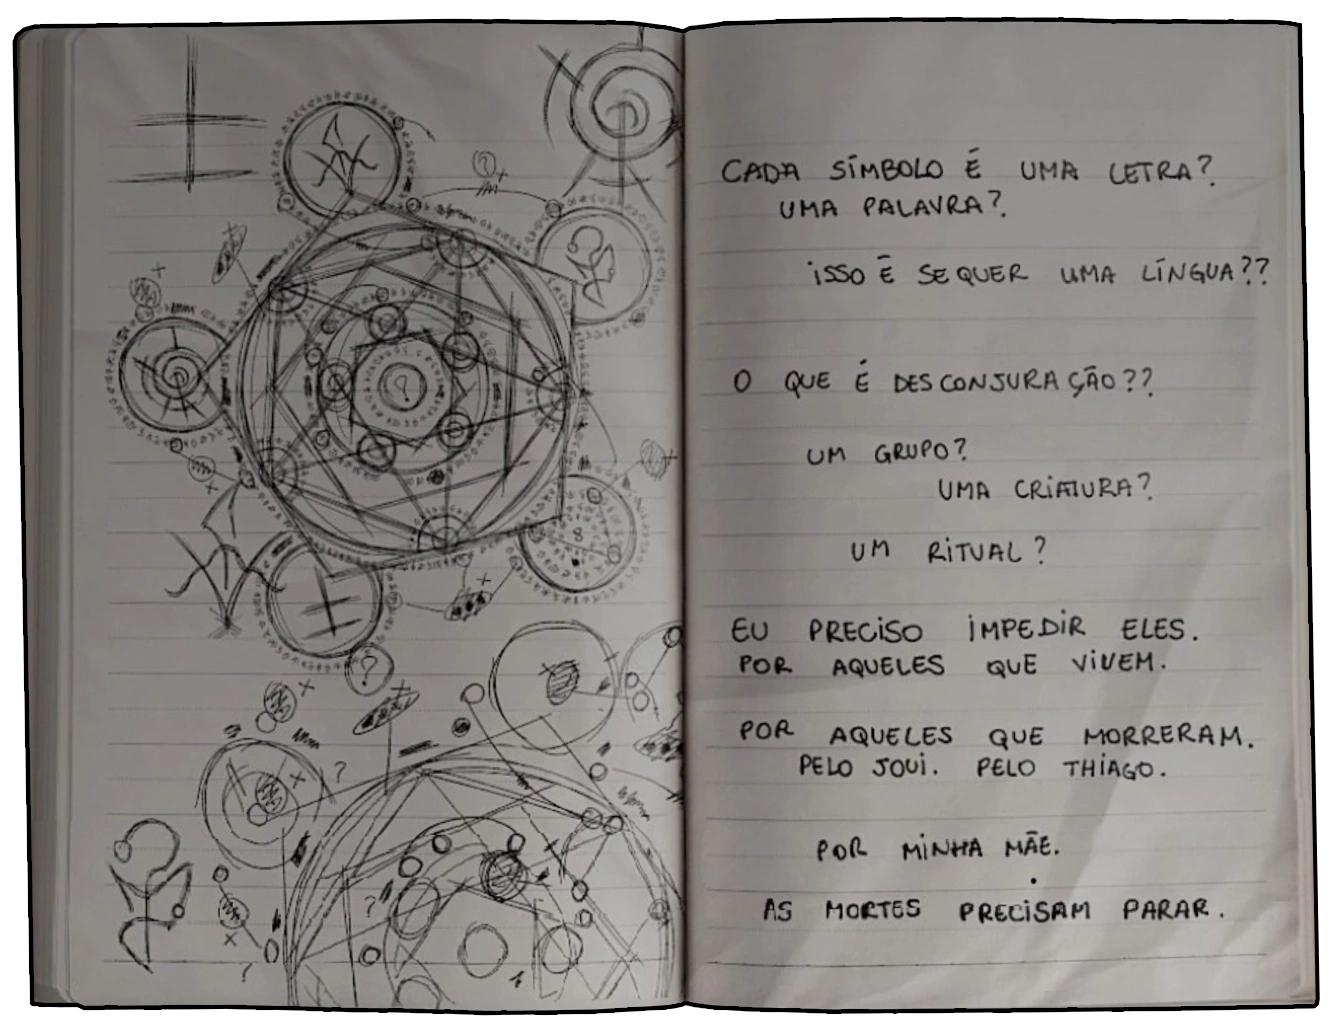 CADA SÍMBOLO É UMA LETRA?
UMA PALAVRA?
ISSO É SEQUER UMA LÍNGUA??
O QUE É DESCONJURAÇÃO??
UM GRUPO?
UMA CRIATURA?
UM RITUAL?
EU PRECISO IMPEDIR ELES.
POR AQUELES QUE VIVEM.
POR AQUELES QUE MORRERAM.
PELO JOUI. PELO THIAGO.
POR MINHA MÃE.
AS MORTES PRECISAM PARAR.